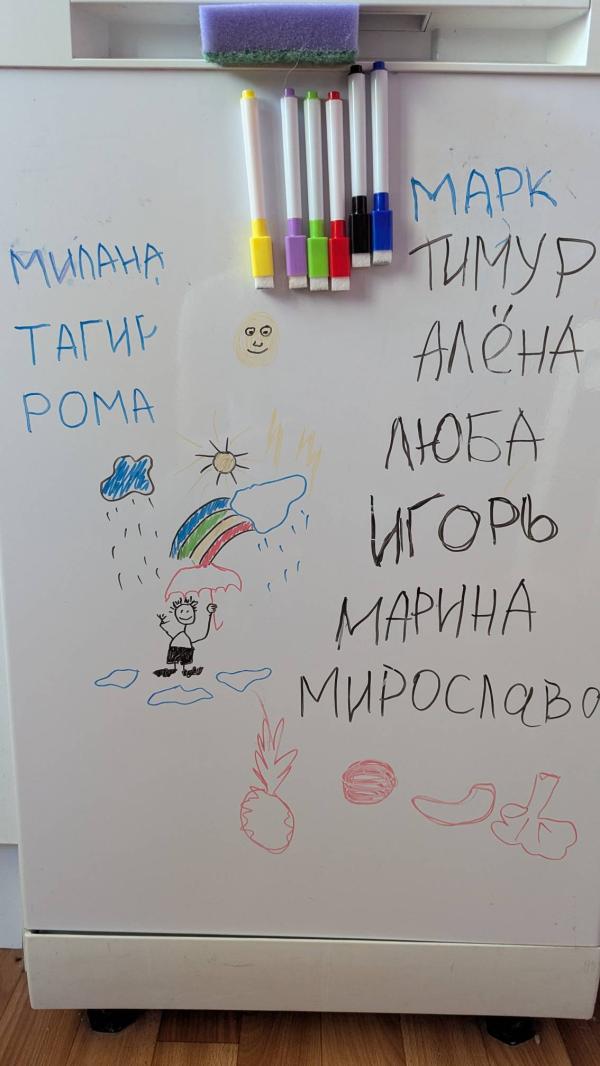 МИЛАНА
ТАГИР
РОМА
МАРК
ТИМУР
АЛЁНА
ЛЮБА
ИГОРЬ
МАРИНА
МИРОСЛАВА